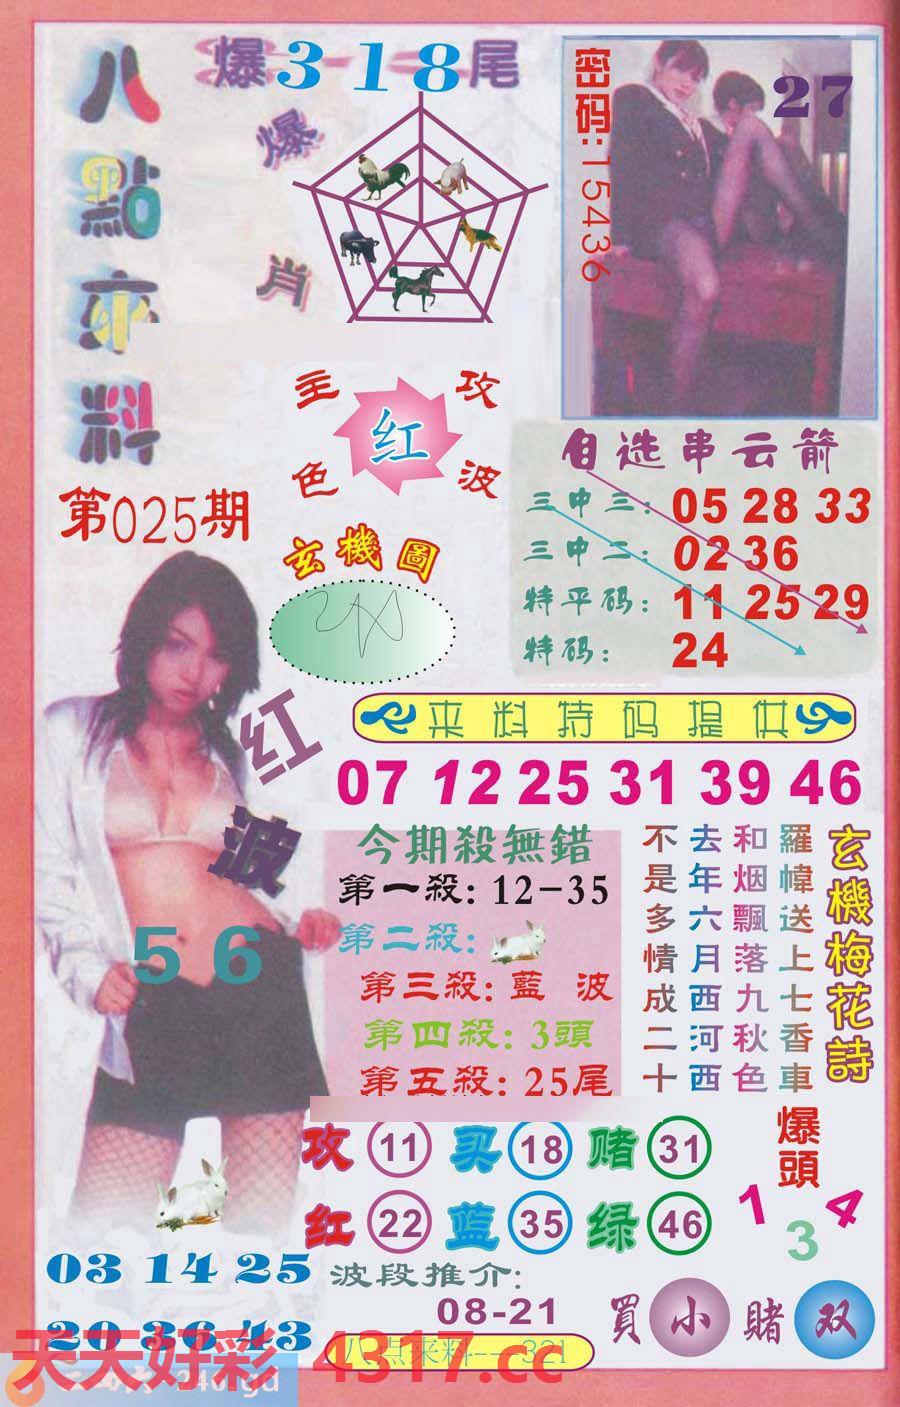 八點來料
爆318尾
爆肖
密码:15436
27
主攻
红
色波
第025期
玄機圖
自选串云箭
三中三: 05 28 33
三中二: 02 36
特平码: 11 25 29
特码: 24
来料特码提供
07 12 25 31 39 46
红波
56
今期殺無錯
第一殺: 12-35
第二殺:
第三殺: 藍 波
第四殺: 3頭
第五殺: 25尾
玄機梅花詩
羅幃送上七香車
和烟飄落九秋色
去年六月西河西
不是多情成二十
攻 11 买 18 赌 31
红 22 蓝 35 绿 46
爆頭
1 3 4
03 14 25
20 36 43
波段推介:
08-21
買小 賭双
八点来料---321
天天好彩 4317.cc